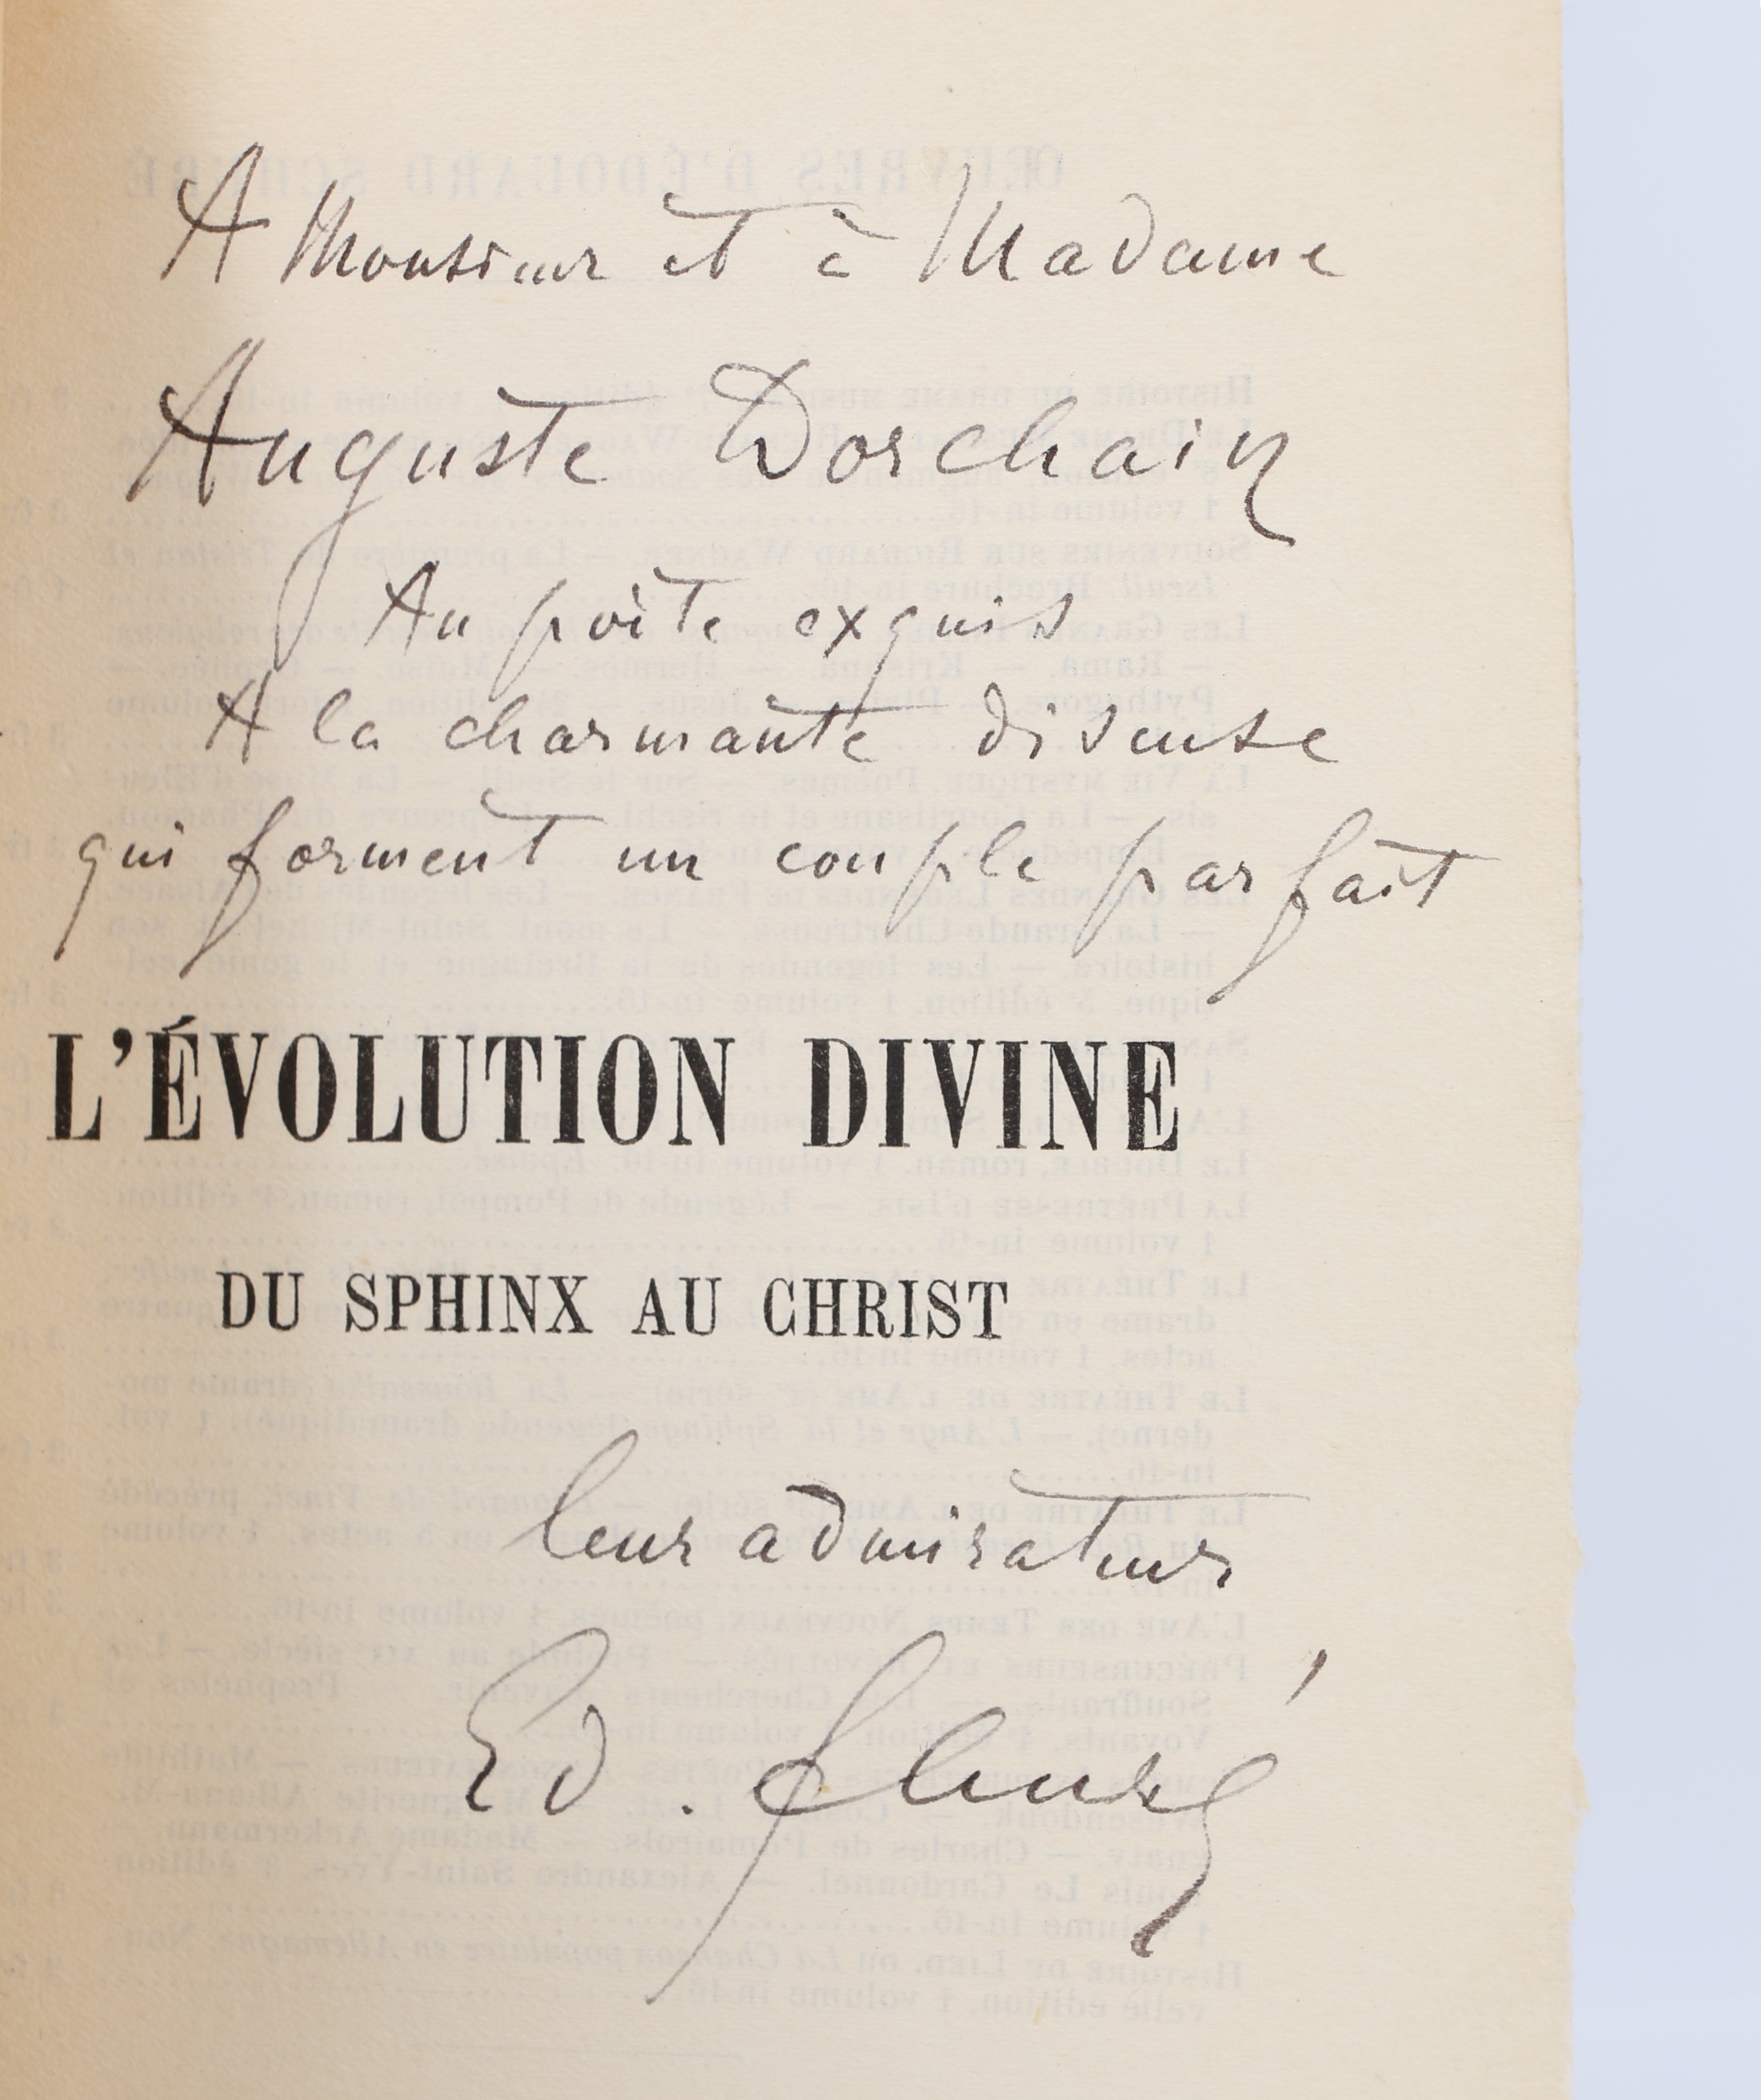 A Monsieur et à Madame
Auguste Dorchain
Au poète exquis
A la charmante diseuse
qui forment un couple parfait
L'ÉVOLUTION DIVINE
DU SPHINX AU CHRIST
leur admirateur
Ed. Schuré